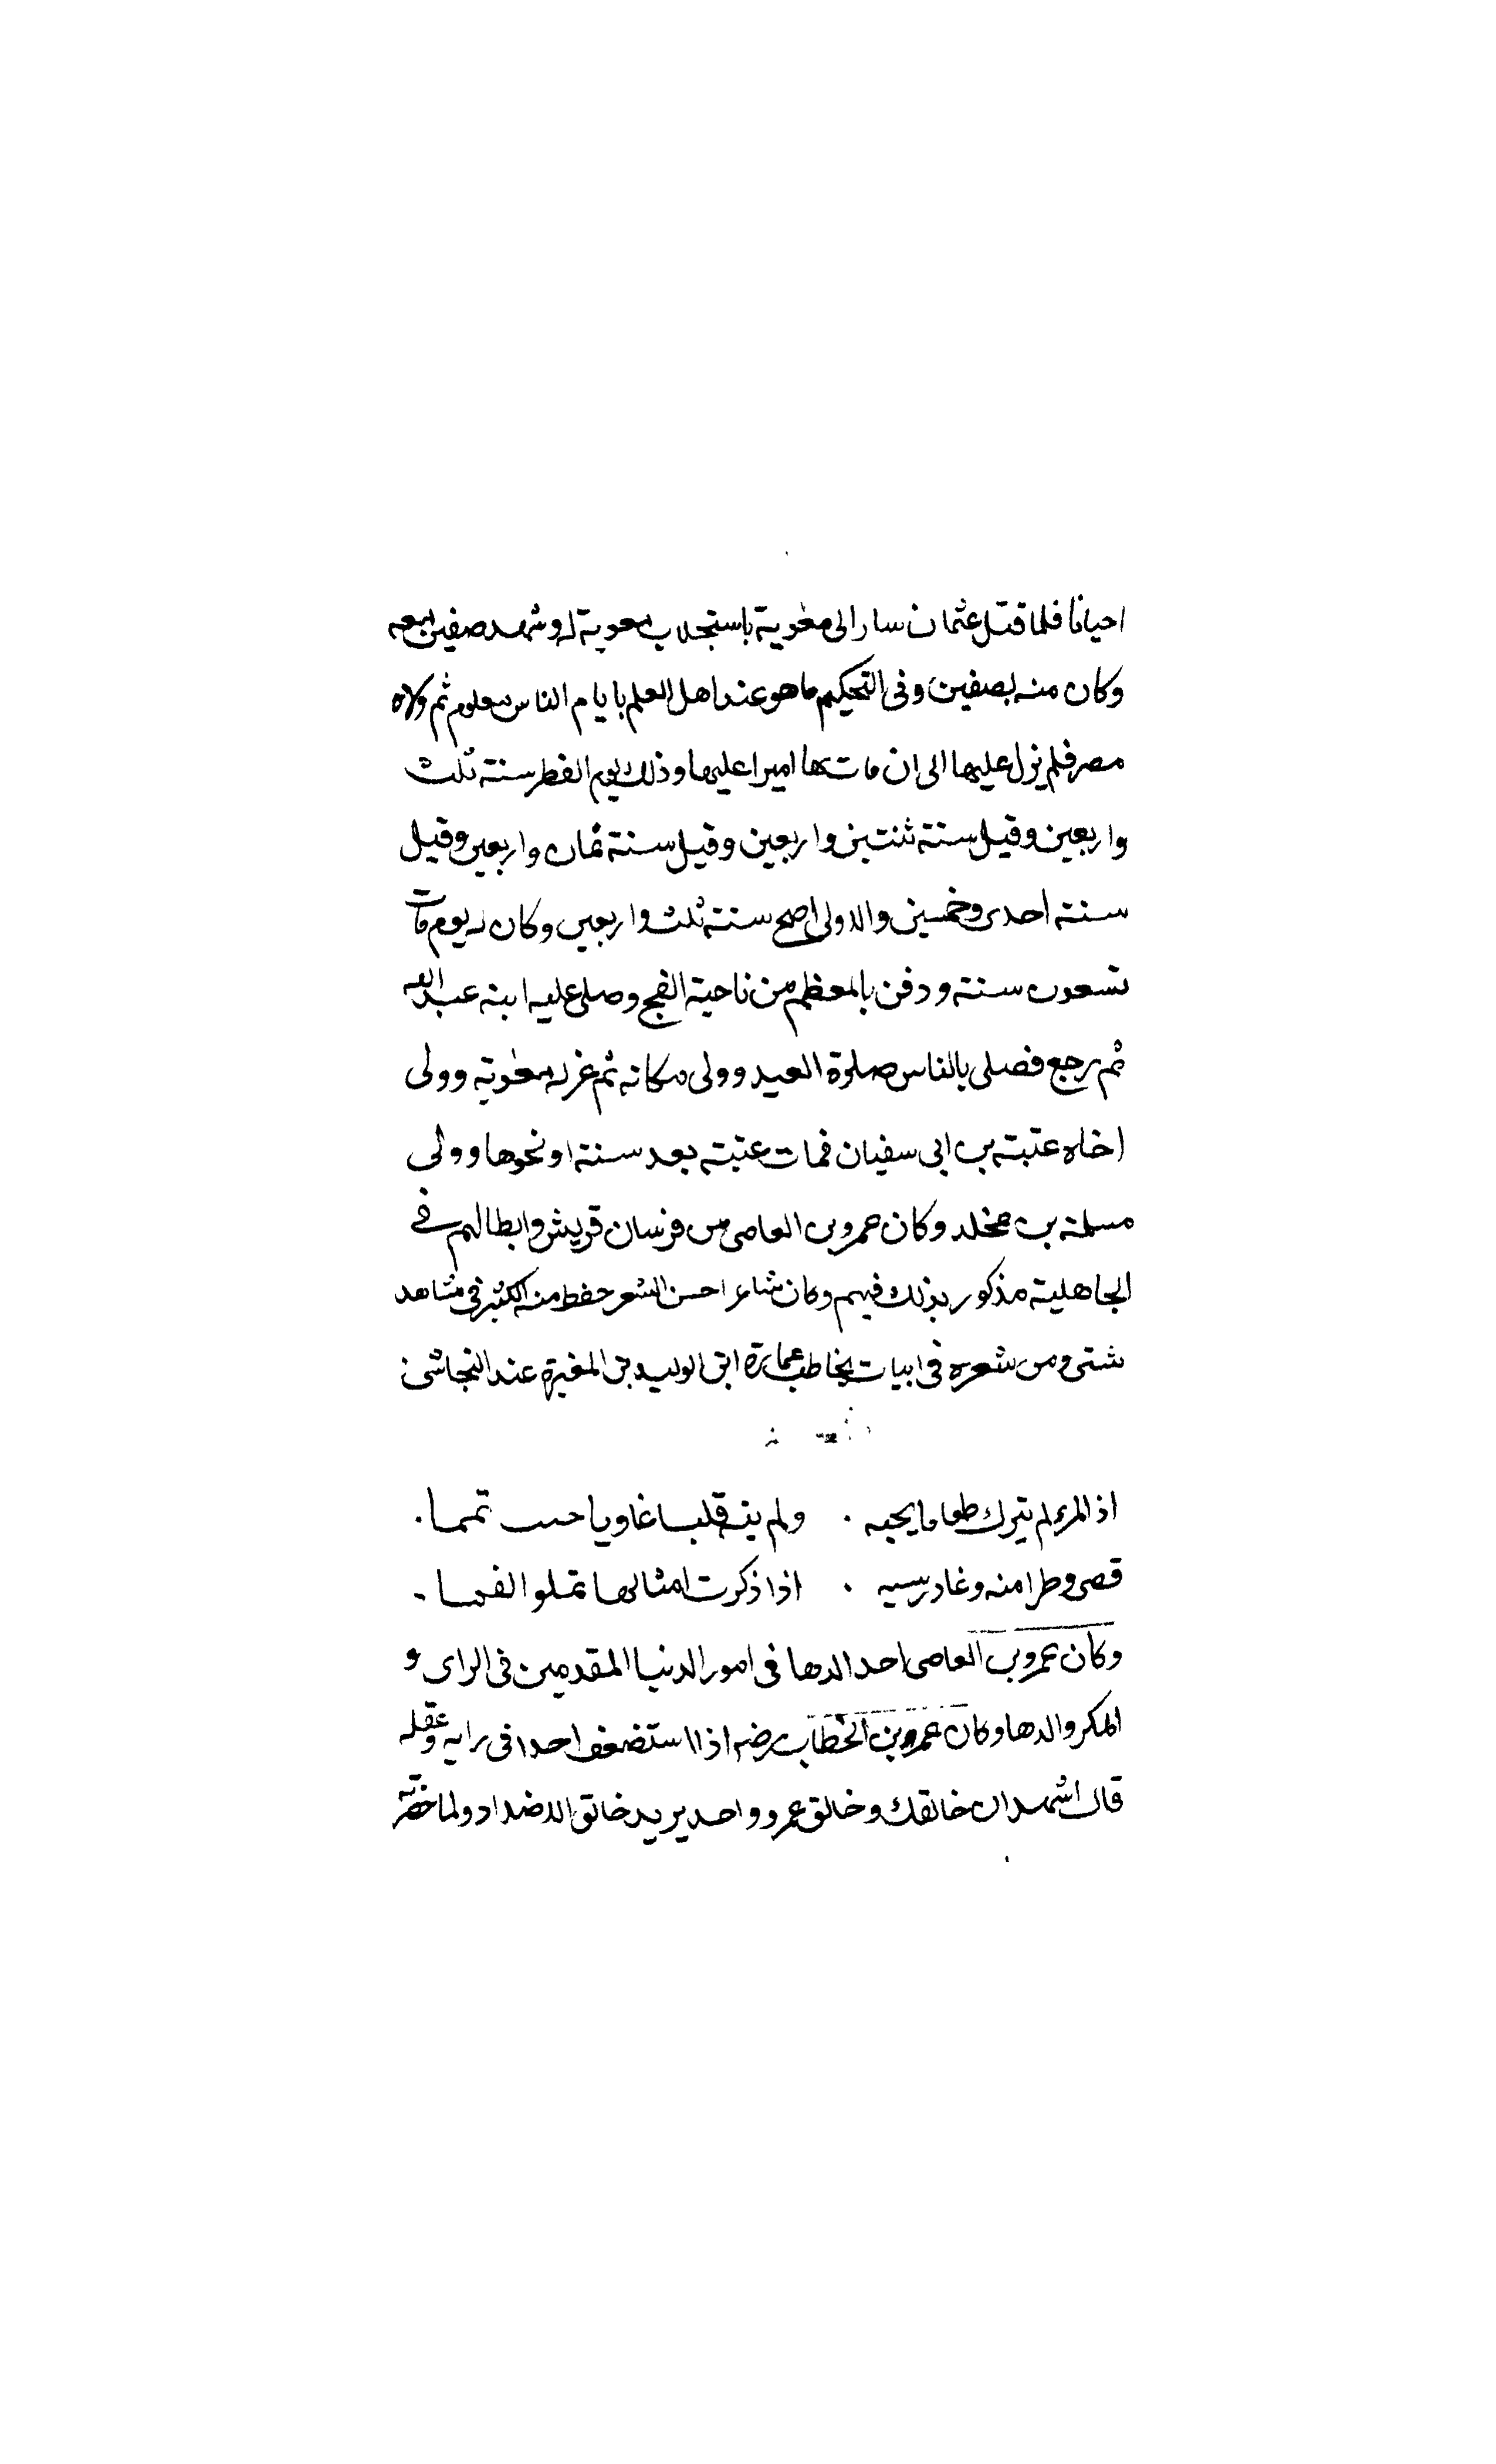 احيانا فلما قتل عثمان سار الى معوية باستجلاب معوية له وشهد صفين معه
وكان منه بصفين وفى التحكيم ما هو عند اهل العلم بايام الناس معلوم ثم ولاه
مصر فلم يزل عليها الى ان مات بها اميرا عليها وذلك يوم الفطر سنة ثلث
واربعين وقيل سنة ثنتين واربعين وقيل سنة ثمان واربعين وقيل
سنة احدى وخمسين والاولى اصح سنة ثلث واربعين وكان له يوم مات
تسعون سنة ودفن بالمعظم من ناحية الفج وصلى عليه ابنه عبد الله
ثم رجع فصلى بالناس صلوة العيد وولى مكانه ثم عزله معوية وولى
اخاه عتبة بن ابى سفيان فمات عتبة بعد سنة او نحوها وولى
مسلمة بن مخلد وكان عمرو بن العاصى من فرسان قريش وابطالهم فى
الجاهلية مذكور بذلك فيهم وكان شاعرا حسن الشعر حفظ منه الكثير فى مشاهد
شتى ومن شعره فى ابيات يخاطب عمارة ابن الوليد بن المغيرة عند النجاشى
اذ المرء لم يترك طعاما يحبه ٠ ولم ينه قلبا غاويا حيث تمما ٠
قصى وطرا منه وغادر سبه ٠ اذا ذكرت امثالها تملو الفما ٠
وكان عمرو بن العاصى احد الدها فى امور الدنيا المقدمين فى الراى و
المكر والدها وكان عمرو بن الخطاب رضه اذا استضعف احدا فى رايه وعقله
قال اشهد ان خالقك وخالق عمرو واحد يريد خالق الاضداد ولما حضرته